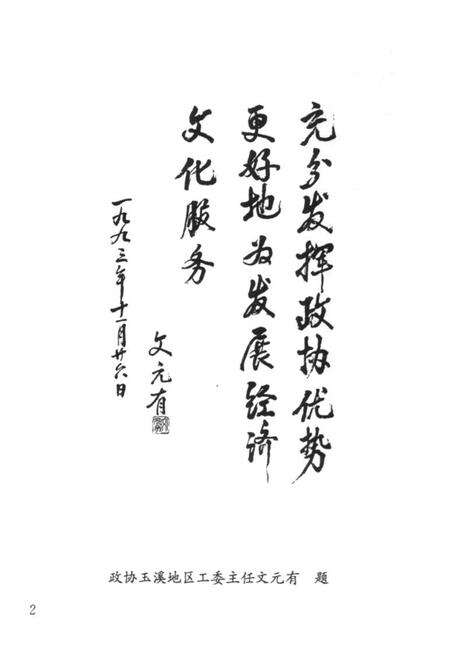 充分发挥政协优势
更好地为发展经济
文化服务
文元有
一九九三年十一月廿六日
政协玉溪地区工委主任文元有 题
2